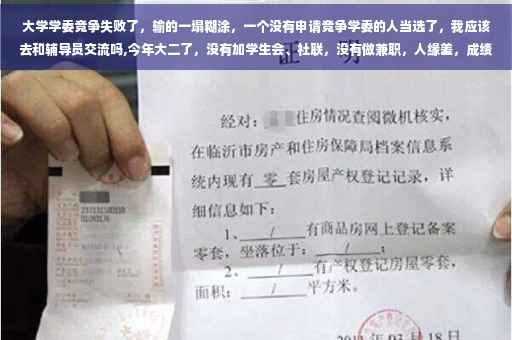 大学学委竞争失败了，输的一塌糊涂，一个没有申请竞争学委的人当选了，我应该
去和辅导员交流吗,今年大二了，没有加学生会，社联，没有做兼职，人缘差，成绩
证 明
经对：住房情况查阅微机核实，
在临沂市房产和住房保障局档案信息系
统内现有 零 套房屋产权登记记录，详
细信息如下：
1、 / 有商品房网上登记备案
零套，坐落位于： / ；
2、 / 有产权登记房屋零套，
面积： / 平方米。
03月18日